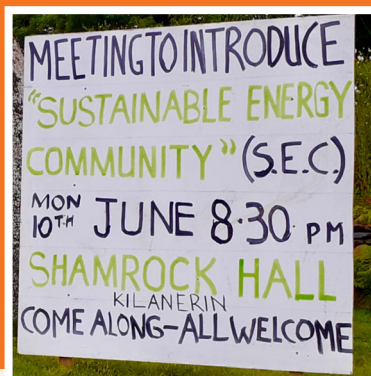 MEETING TO INTRODUCE
"SUSTAINABLE ENERGY
COMMUNITY" (S.E.C.)
MON
10TH JUNE 8·30 PM
SHAMROCK HALL
KILANERIN
COME ALONG-ALL WELCOME